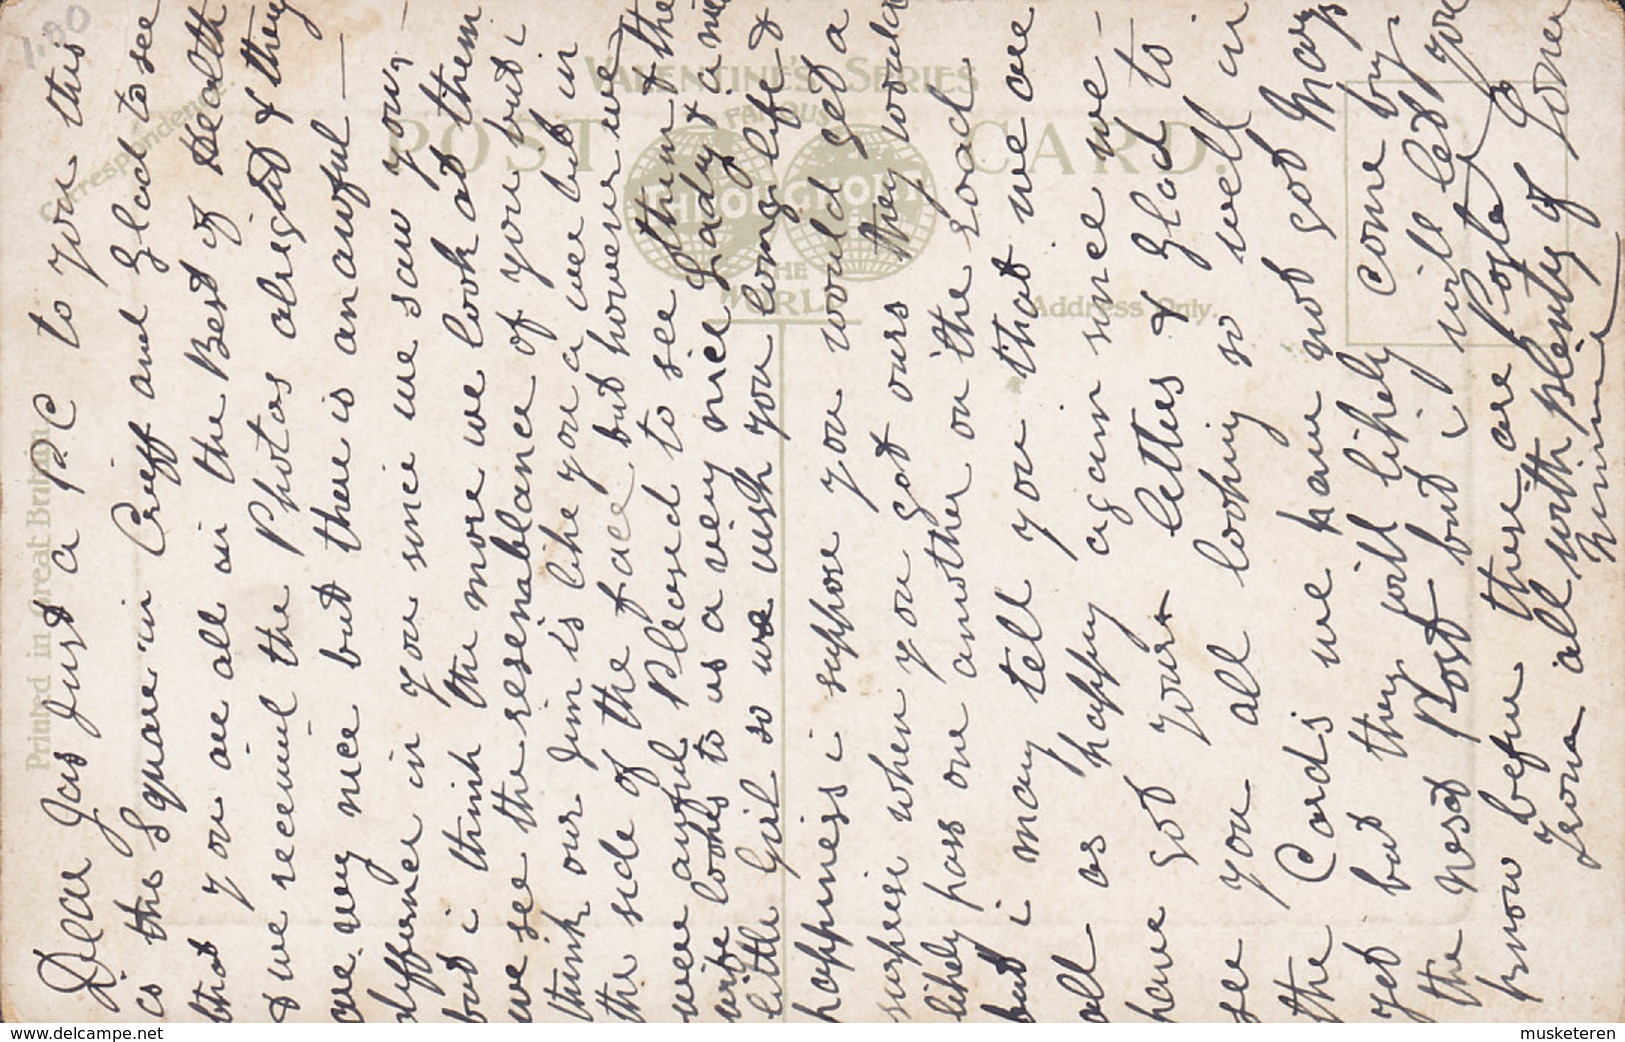 1.00
Correspondence.
VALENTINE'S SERIES
FAMOUS
POST CARD.
THROUGHOUT
THE
WORLD
Address Only.
Printed in Great Britain
Dear Jas Just a P.C to you this
is the Square in Crieff and Glad to see
that you are all in the Best of Health
& we received the Photos alright & they
are very nice but there is an awful
differner in you since we saw you
but i think the more we look at them
we see the resenablance of you but i
think our Jim is like you a wee bit in
the side of the face but however we
were awful Pleased to see them & the
wife looks to us a very nice Lady & a nice
little Girl so we wish you long life &
happiness i suppose you would get a
surprise when you got ours they would
likely pass one another on the road
but i may tell you that we are
all as happy again since we
have got yours letters & Glad to
see you all looking so well in
the Cards we have not got Mays
yet but they will likely come by
the next Post but i will let you
know before these are Posted
from all with plenty of Love